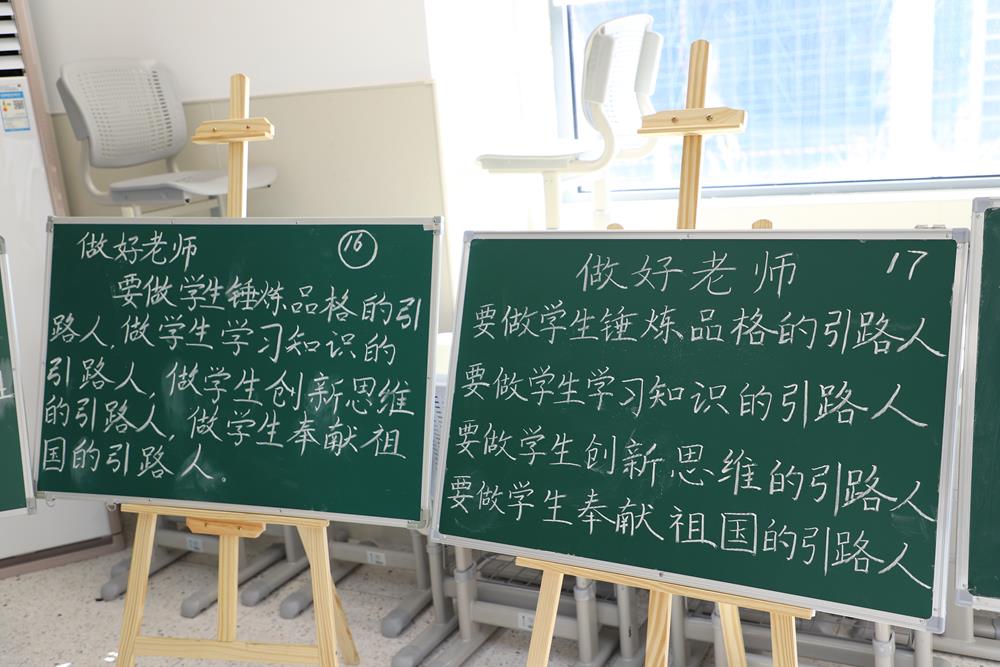 做好老师
16
要做学生锤炼品格的引
路人,做学生学习知识的
引路人,做学生创新思维
的引路人,做学生奉献祖
国的引路人。
做好老师
17
要做学生锤炼品格的引路人
要做学生学习知识的引路人
要做学生创新思维的引路人
要做学生奉献祖国的引路人